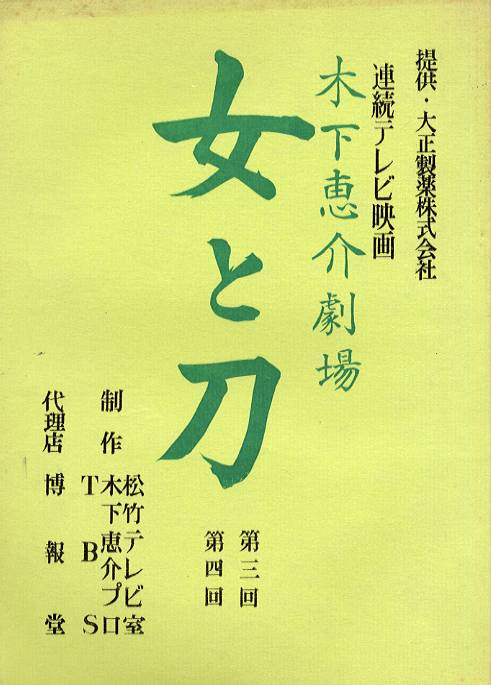 提供・大正製薬株式会社
連続テレビ映画
木下恵介劇場
女と刀
第三回
第四回
制作
松竹テレビ室
木下恵介プロ
TBS
代理店 博報堂